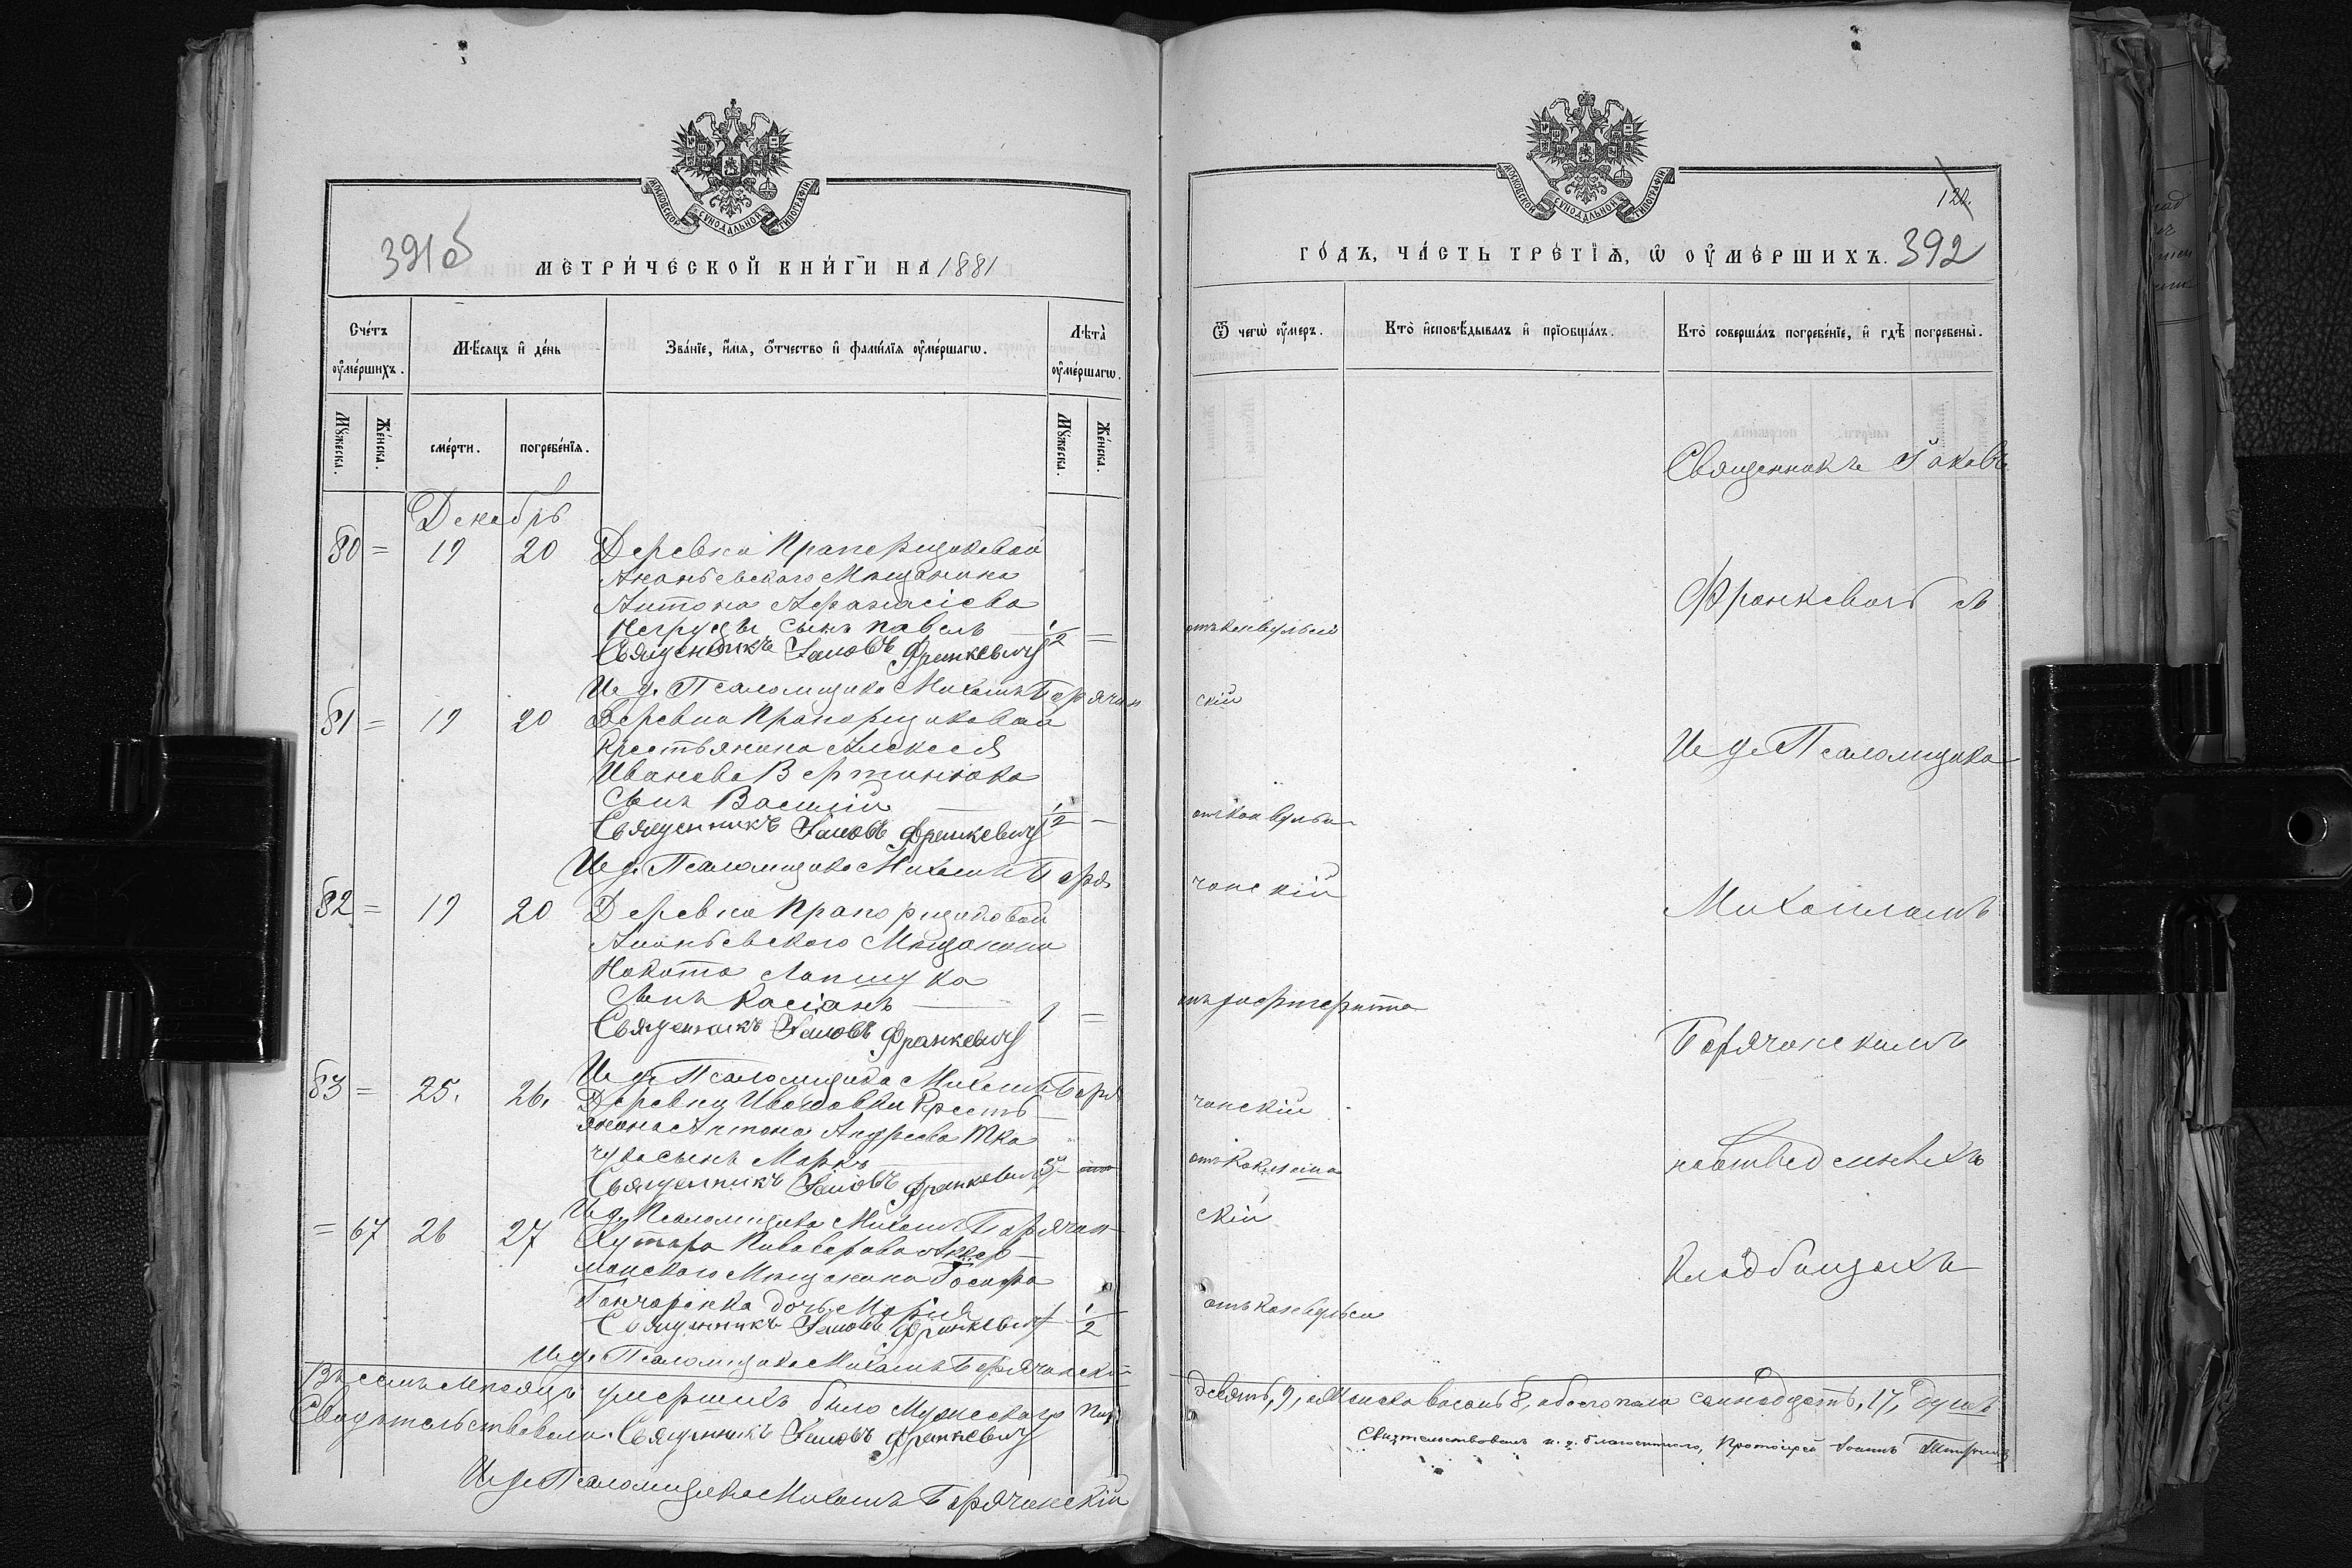 МОСКОВСКОЙ СѴНОДАЛЬНОЙ ТИПОГРАФІИ
391б
МЕТРИ́ЧЕСКОЙ КНИ́ГИ НА 1881
Сче́тъ оу҆ме́ршихъ.
Мѣ́сѧцъ и҆ де́нь
Зва́нїе, и҆́мѧ, ѻ҆́тчество и҆ фами́лїѧ оу҆ме́ршагѡ.
Лѣ́та оу҆ме́ршагѡ.
Мꙋ́жеска.
Же́нска.
сме́рти.
погребе́нїѧ.
Мꙋ́жеска.
Же́нска.
Декабрь
80 = 19 20 Деревни Прапорщиковой
Ананьевского Мещанина
Антона Афанасіева
Негруцы сынъ Павелъ — 1/2 =
Священникъ Іаковъ Франкевичъ
И д. Псаломщика Михаилъ Горячан
81 = 19 20 Деревни Прапорщиковой
Крестьянина Алексея
Иванова Вертинюка
сынъ Василій — 1/2 —
Священникъ Іаковъ Франкевичъ
И д. Псаломщика Михаилъ Горя
82 = 19 20 Деревни Прапорщиковой
Ананьевского Мещанина
Сынъ Касіанъ — 1 =
Священникъ Іаковъ Франкевичъ
И д. Псаломщика Михаилъ Горя
83 = 25. 26. Деревни Ивановки Кресть
янина Антона Андреева Тка
чука сынъ Маркъ
Священникъ Іаковъ Франкевичъ
И д. Псаломщика Михаилъ Горячан
= 67 26 27 Хутора Пивоварова Аккер
манского Мещанина Іосифа
Гончаренка дочь Марія — 1/2
Священникъ Іаковъ Франкевичъ
И д. Псаломщика Михаилъ Горячанскій
Въ семъ Месяцѣ умершихъ было Мужескаго пола
Свидѣтельствовали: Священникъ Іаковъ Франкевичъ
И д. Псаломщика Михаилъ Горячанскій
МОСКОВСКОЙ СѴНОДАЛЬНОЙ ТИПОГРАФІИ
120.
ГО́ДЪ, ЧА́СТЬ ТРЕ́ТЇѦ, Ѡ҆ ОУ҆МЕ́РШИХЪ. 392
Ѿ чегѡ̀ оу҆́меръ.
Кто̀ и҆сповѣ́дывалъ и҆ прїѡбща́лъ.
Кто̀ соверша́лъ погребе́нїе, и҆ гдѣ̀ погребены̀.
Священникъ Іаковъ
Франкевичъ съ
отъ конвульсій
скій
И д. Псаломщика
отъ конвульси
чанскій
Михаиломъ
отъ дифтерита
Горячанскимъ
чанскій
на отведенныхъ
скій
кладбищахъ
отъ конвульси
девять, 9, а Женска восемь 8, обоего пола семнадцать, 17, душъ
Свидѣтельствовалъ и. д. благочиннаго, Протоіерей Іоаннъ